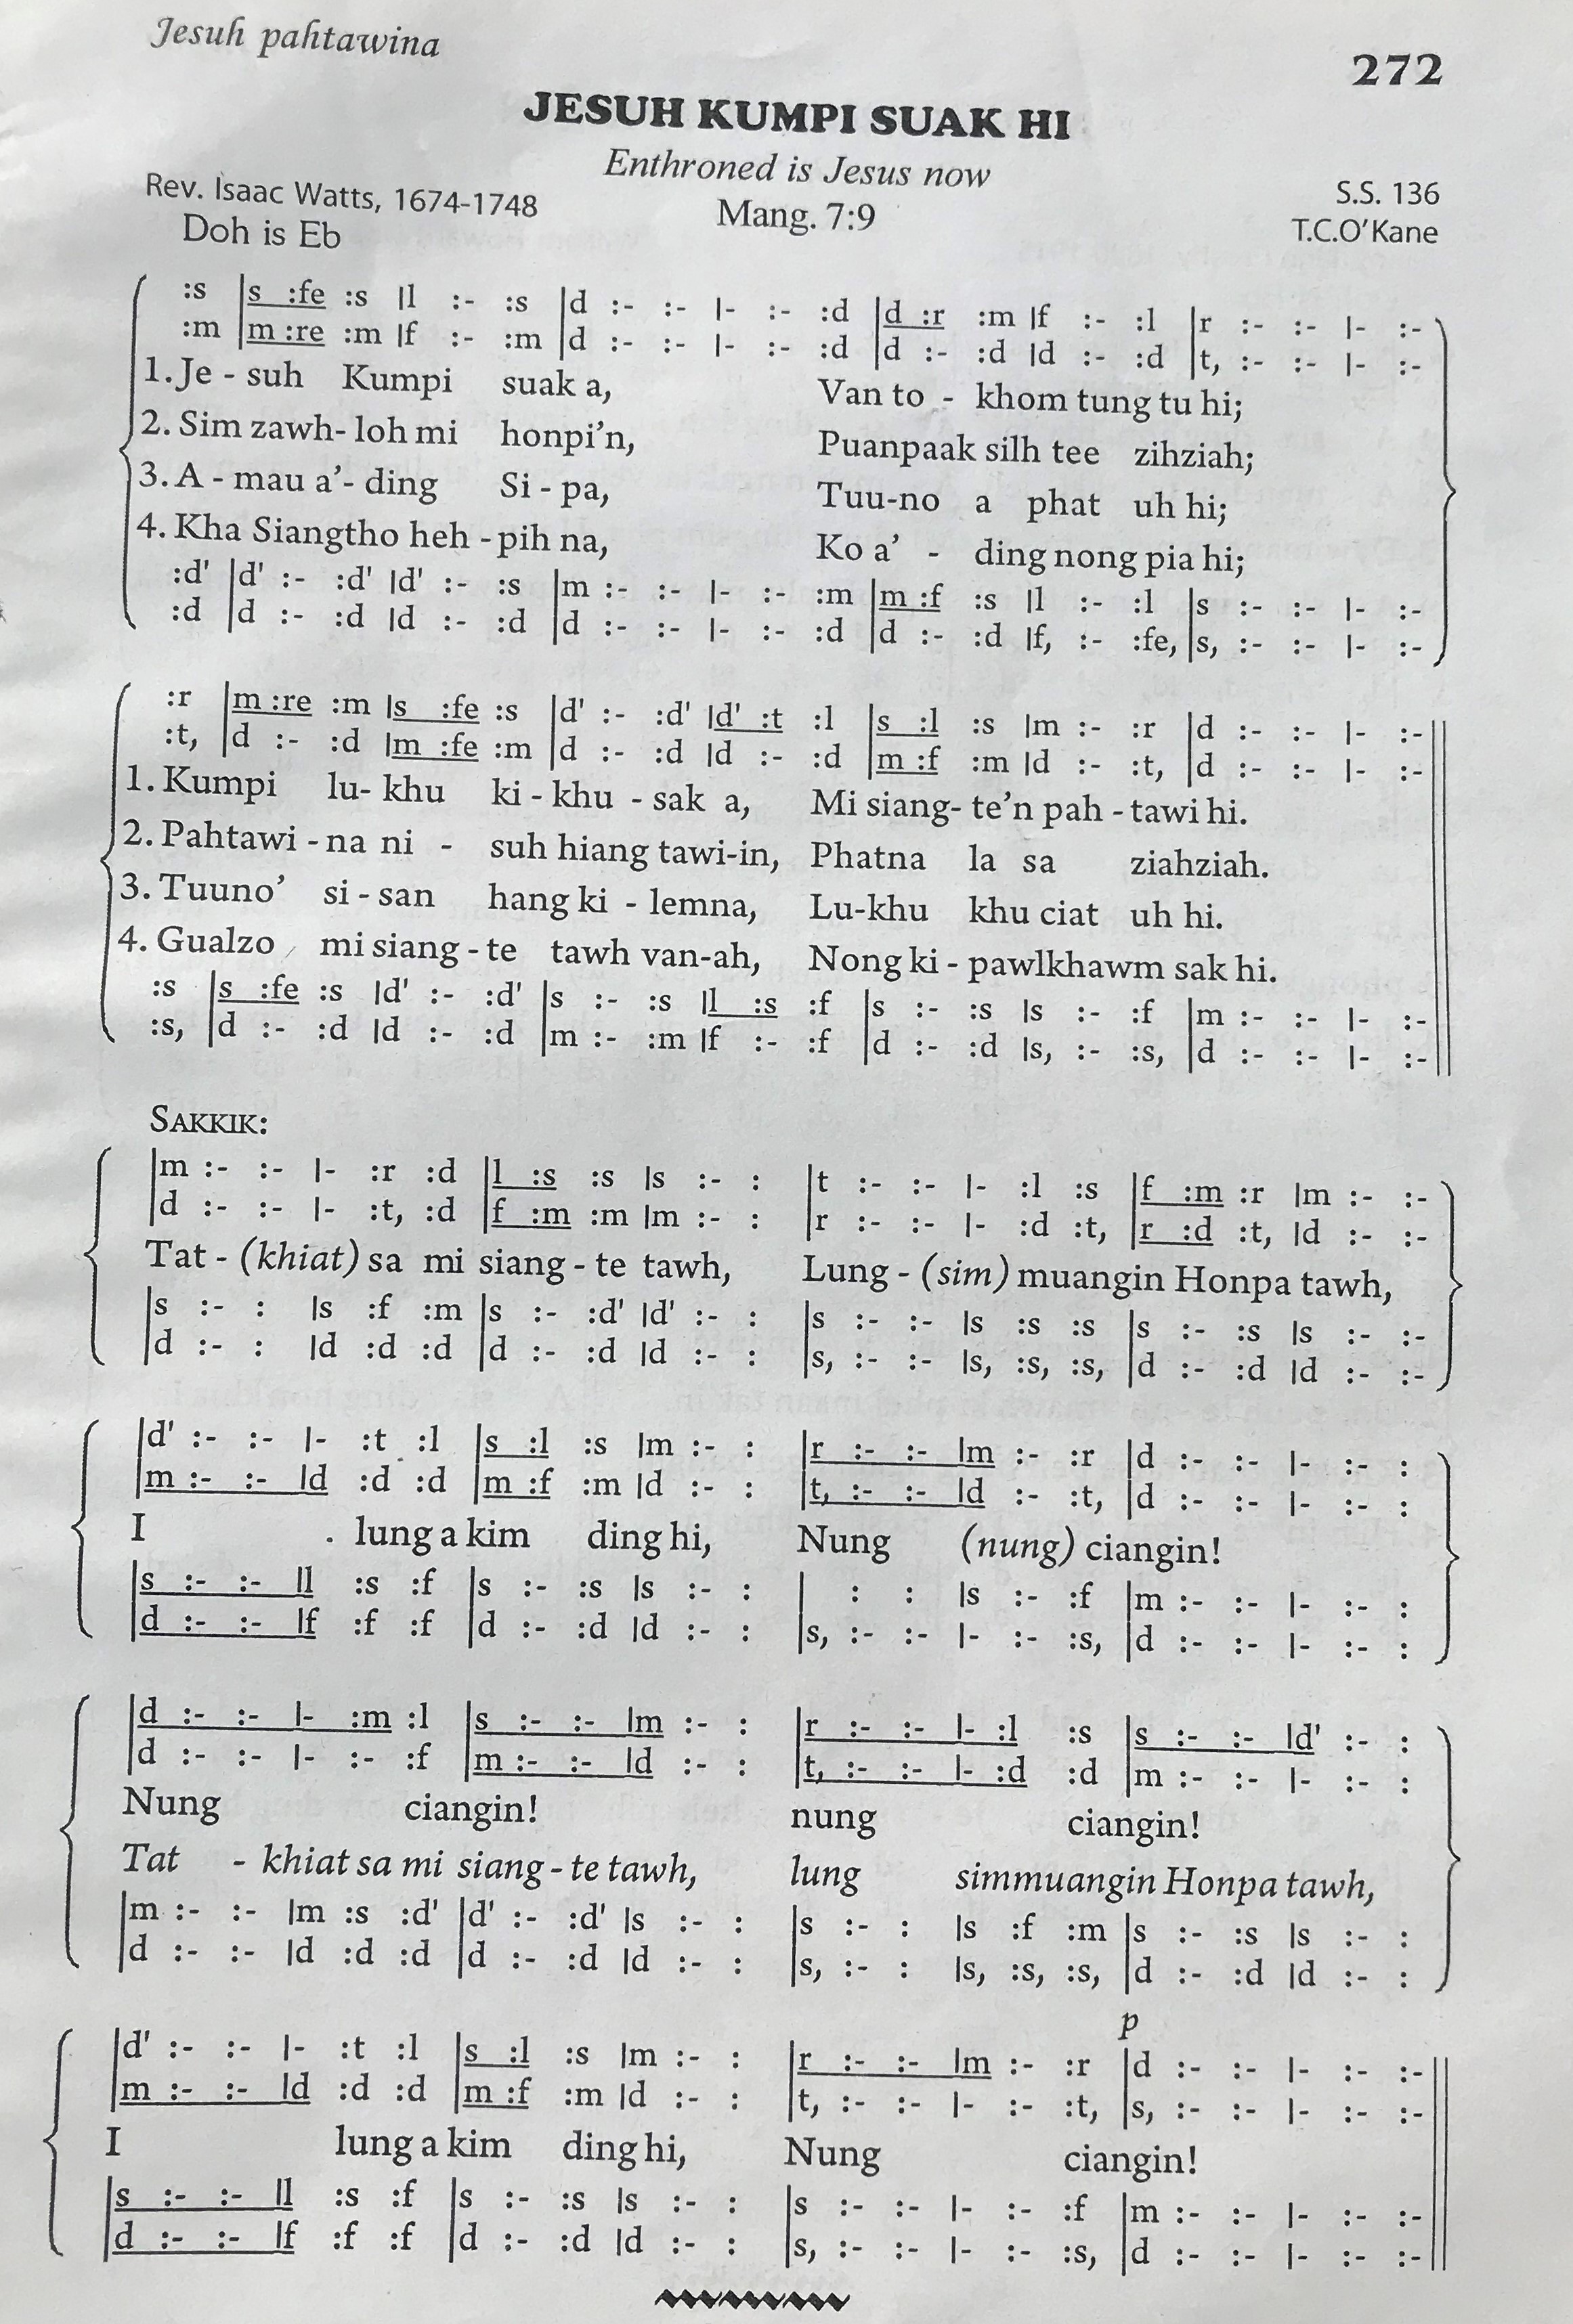 Jesuh pahtawina
272
JESUH KUMPI SUAK HI
Enthroned is Jesus now
Rev. Isaac Watts, 1674-1748 Mang. 7:9 S.S. 136
Doh is Eb T.C.O'Kane
:s |s :fe :s |l :- :s |d :- :- |- :- :d |d :r :m |f :- :l |r :- :- |- :-
:m |m :re :m |f :- :m |d :- :- |- :- :d |d :- :d |d :- :d |t, :- :- |- :-
1. Je - suh Kumpi suak a, Van to - khom tung tu hi;
2. Sim zawh- loh mi honpi'n, Puanpaak silh tee zihziah;
3. A - mau a'- ding Si - pa, Tuu-no a phat uh hi;
4. Kha Siangtho heh - pih na, Ko a' - ding nong pia hi;
:d' |d' :- :d' |d' :- :s |m :- :- |- :- :m |m :f :s |l :- :l |s :- :- |- :-
:d |d :- :d |d :- :d |d :- :- |- :- :d |d :- :d |f, :- :fe, |s, :- :- |- :-
:r |m :re :m |s :fe :s |d' :- :d' |d' :t :l |s :l :s |m :- :r |d :- :- |- :-
:t, |d :- :d |m :fe :m |d :- :d |d :- :d |m :f :m |d :- :t, |d :- :- |- :-
1. Kumpi lu- khu ki - khu - sak a, Mi siang- te'n pah - tawi hi.
2. Pahtawi - na ni - suh hiang tawi-in, Phatna la sa ziahziah.
3. Tuuno' si - san hang ki - lemna, Lu-khu khu ciat uh hi.
4. Gualzo mi siang - te tawh van-ah, Nong ki - pawlkhawm sak hi.
:s |s :fe :s |d' :- :d' |s :- :s |l :s :f |s :- :s |s :- :f |m :- :- |- :-
:s, |d :- :d |d :- :d |m :- :m |f :- :f |d :- :d |s, :- :s, |d :- :- |- :-
SAKKIK:
|m :- :- |- :r :d |l :s :s |s :- : |t :- :- |- :l :s |f :m :r |m :- :-
|d :- :- |- :t, :d |f :m :m |m :- : |r :- :- |- :d :t, |r :d :t, |d :- :-
Tat - (khiat) sa mi siang - te tawh, Lung - (sim) muangin Honpa tawh,
|s :- : |s :f :m |s :- :d' |d' :- : |s :- :- |s :s :s |s :- :s |s :- :-
|d :- : |d :d :d |d :- :d |d :- : |s, :- :- |s, :s, :s, |d :- :d |d :- :-
|d' :- :- |- :t :l |s :l :s |m :- : |r :- :- |m :- :r |d :- :- |- :- :
|m :- :- |d :d :d |m :f :m |d :- : |t, :- :- |d :- :t, |d :- :- |- :- :
I . lung a kim ding hi, Nung (nung) ciangin!
|s :- :- |l :s :f |s :- :s |s :- : | : : |s :- :f |m :- :- |- :- :
|d :- :- |f :f :f |d :- :d |d :- : |s, :- :- |- :- :s, |d :- :- |- :- :
|d :- :- |- :m :l |s :- :- |m :- : |r :- :- |- :l :s |s :- :- |d' :- :
|d :- :- |- :- :f |m :- :- |d :- : |t, :- :- |- :d :d |m :- :- |- :- :
Nung ciangin! nung ciangin!
Tat - khiat sa mi siang - te tawh, lung simmuangin Honpa tawh,
|m :- :- |m :s :d' |d' :- :d' |s :- : |s :- : |s :f :m |s :- :s |s :- :
|d :- :- |d :d :d |d :- :d |d :- : |s, :- : |s, :s, :s, |d :- :d |d :- :
p
|d' :- :- |- :t :l |s :l :s |m :- : |r :- :- |m :- :r |d :- :- |- :- :-
|m :- :- |d :d :d |m :f :m |d :- : |t, :- :- |- :- :t, |s, :- :- |- :- :-
I lung a kim ding hi, Nung ciangin!
|s :- :- |l :s :f |s :- :s |s :- : |s :- :- |- :- :f |m :- :- |- :- :-
|d :- :- |f :f :f |d :- :d |d :- : |s, :- :- |- :- :s, |d :- :- |- :- :-